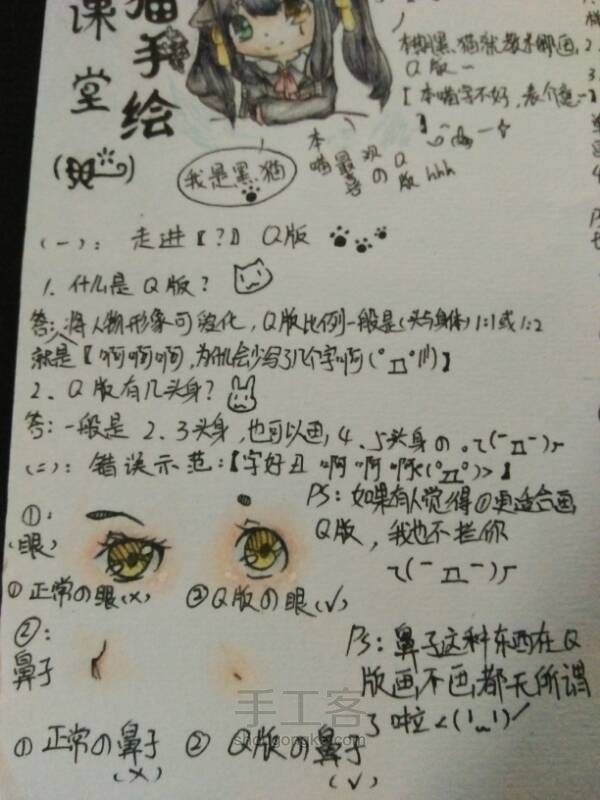 课堂
猫手绘
本期黑猫就教术哪画,
Q版一
【本喵字不好,表介意~】
我是黑猫
本喵最喜欢のQ版hhh
(一):走进【?】Q版
1.什么是Q版?
答:将人物形象可爱化,Q版比例一般是(头与身体)1:1或1:2
就是【啊啊啊,为什么会少写了几个字啊(°ㅁ°|||)】
2、Q版有几头身?
答:一般是2、3头身,也可以画,4、5头身の。
(二):错误示范:【字好丑啊啊啊
①:
(眼)
①正常の眼(×) ②Q版の眼(√)
PS:如果有人觉得①更适合画
Q版,我也不拦你
②:
鼻子
PS:鼻子这种东西在Q
版画,不画,都无所谓
了啦
①正常の鼻子(×) ②Q版の鼻子(√)
手工客
shougongke.com